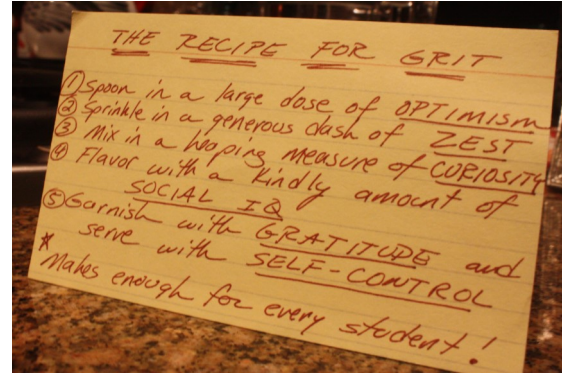 THE RECIPE FOR GRIT
① Spoon in a large dose of OPTIMISM
② Sprinkle in a generous dash of ZEST
③ Mix in a heaping measure of CURIOSITY
④ Flavor with a kindly amount of
SOCIAL IQ
⑤ Garnish with GRATITUDE and
serve with SELF-CONTROL
* Makes enough for every student!